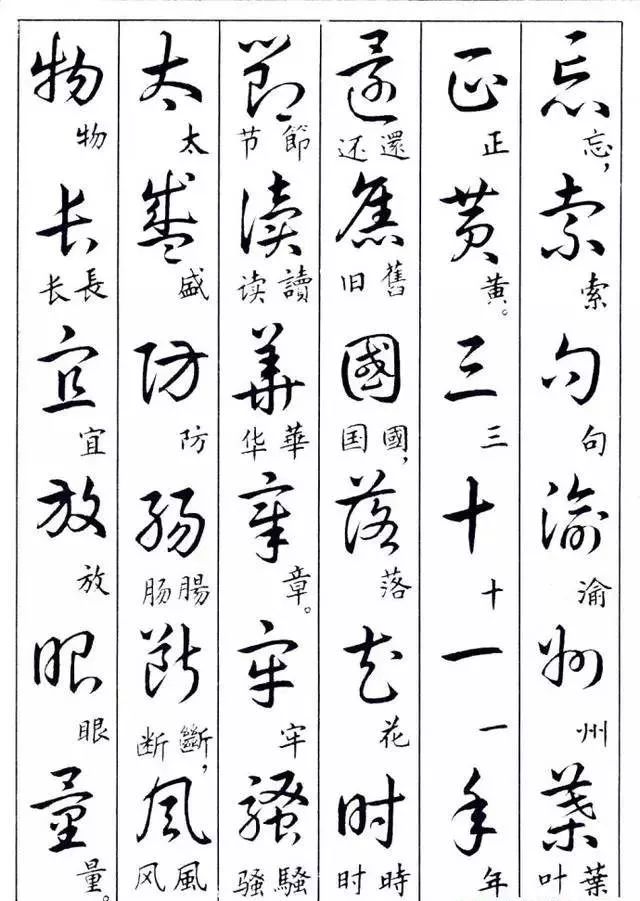 忘索句渝州葉
忘,索句渝州叶葉
正黄三十一年
正黄。三十一年
還舊國落花时
还還旧舊国國,落花时時
節讀華章牢騷
节節读讀华華章。牢骚騷
太盛防腸断風
太盛防肠腸断斷,风風
物长宜放眼量
物长長宜放眼量。